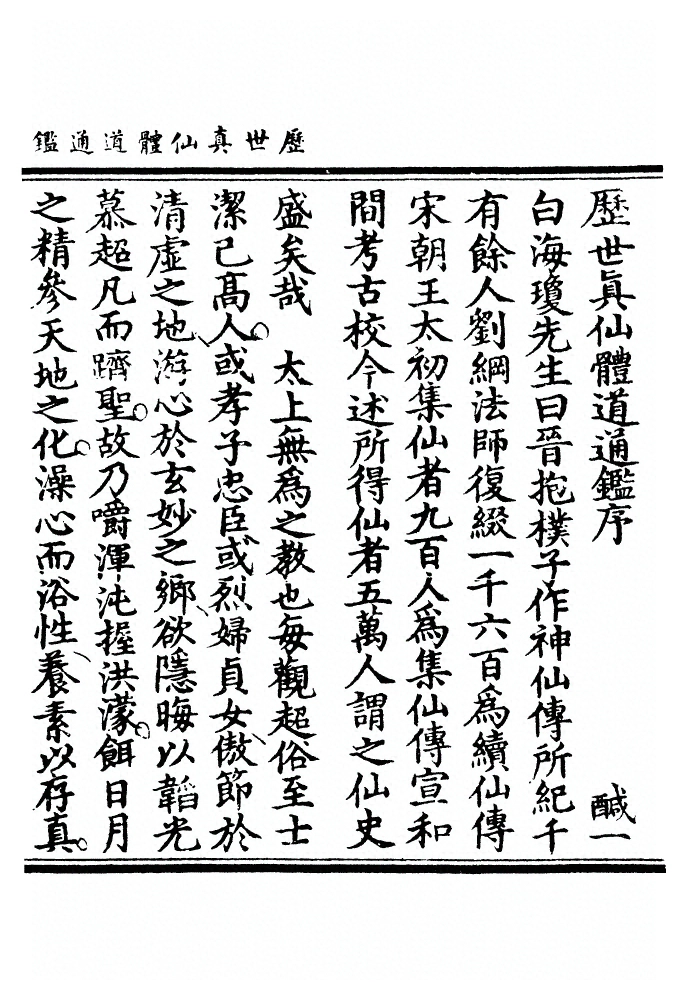 歷世真仙體道通鑑
歷世眞仙體道通鑑序 醎一
白海瓊先生曰晉抱樸子作神仙傳所紀千
有餘人劉綱法師復綴一千六百為續仙傳
宋朝王太初集仙者九百人為集仙傳宣和
間考古校今述所得仙者五萬人謂之仙史
盛矣哉 太上無為之教也每觀超俗至士
潔己高人或孝子忠臣或烈婦貞女傲節於
清虛之地游心於玄妙之鄉欲隱晦以韜光
慕超凡而躋聖故乃嚼渾沌握洪濛餌日月
之精參天地之化澡心而浴性養素以存真